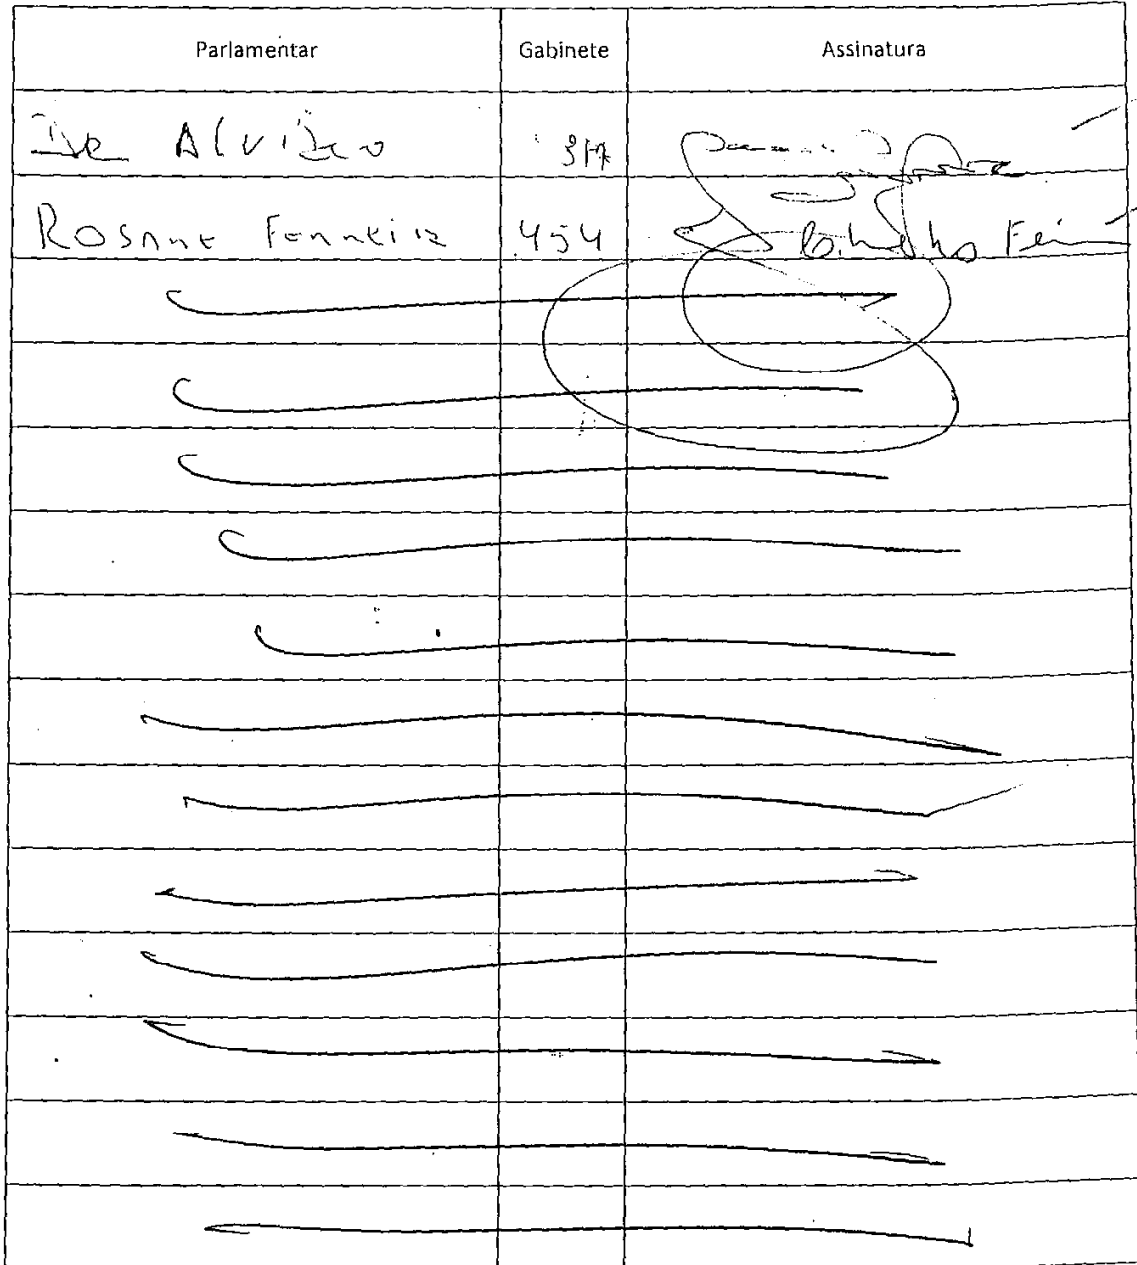 Parlamentar Gabinete Assinatura
Dr Aluizio 317
Rosane Ferreira 454